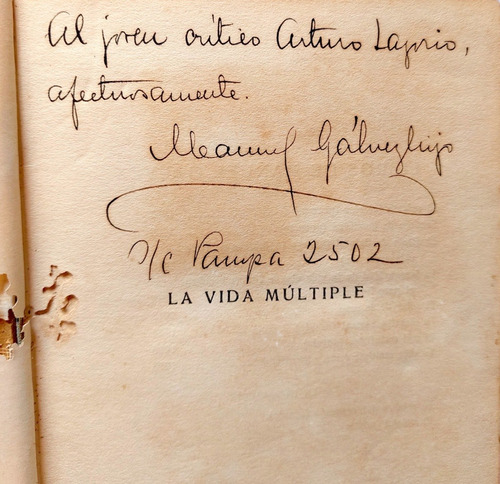 Al joven crítico Arturo Lagorio,
afectuosamente.
Manuel Gálvez hijo
s/c Pampa 2502
LA VIDA MÚLTIPLE